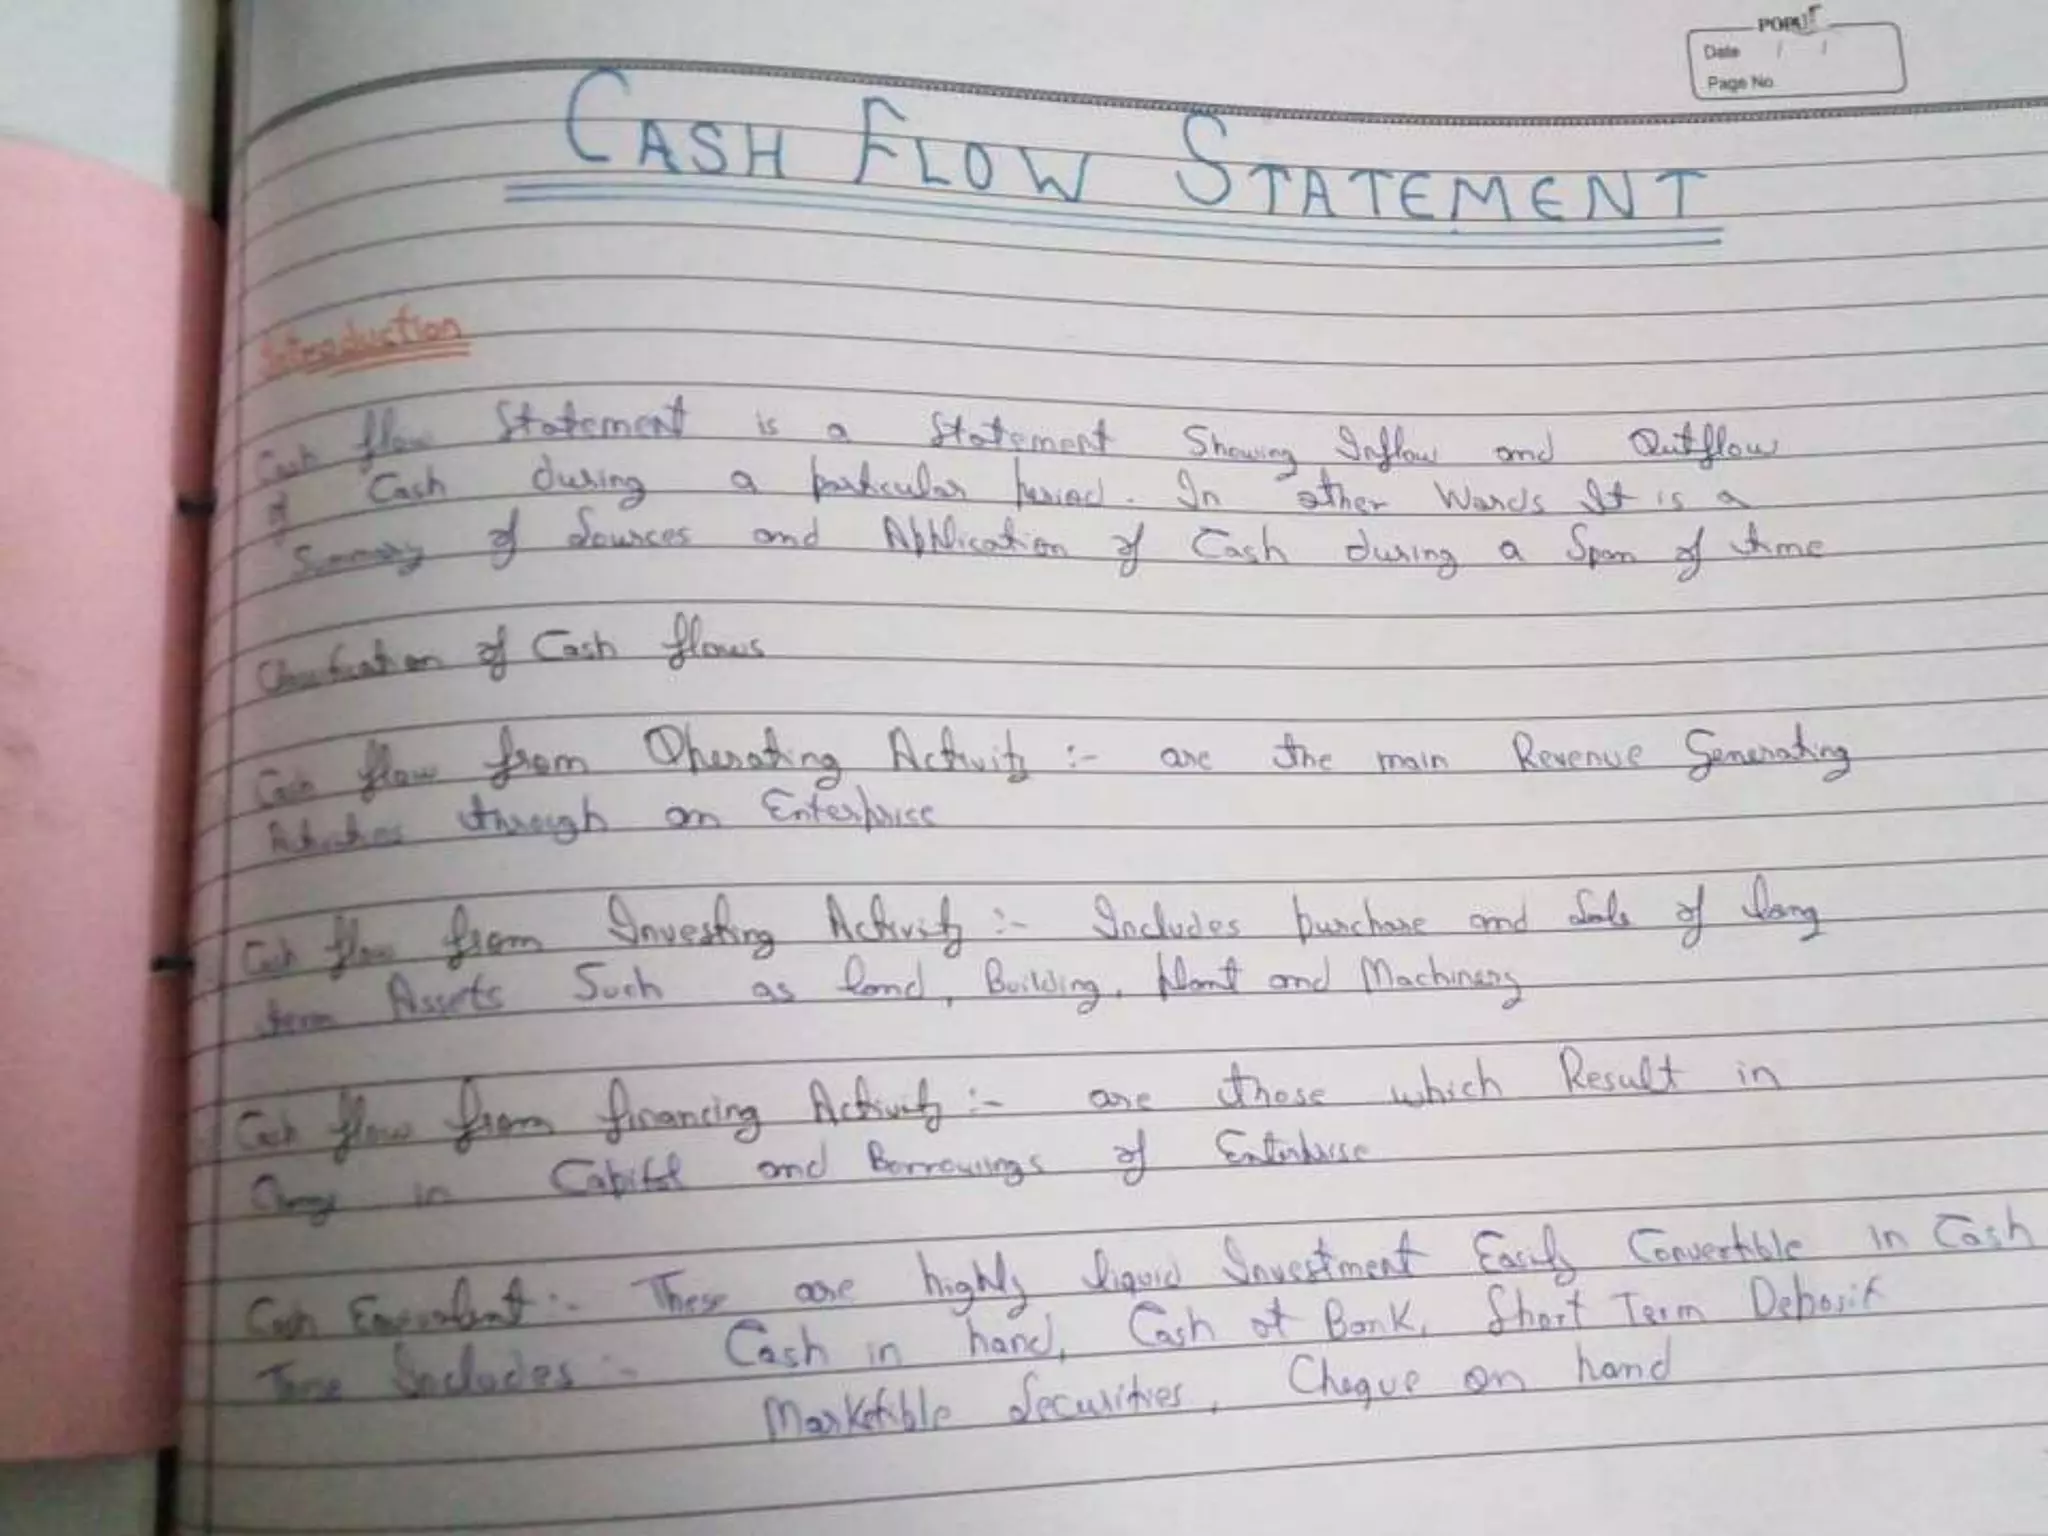 POPU
Date / /
Page No.
CASH FLOW STATEMENT
Introduction
Cash flow Statement is a Statement Showing Inflow and Outflow
of Cash during a particular period. In other Words It is a
Summary of Sources and Application of Cash during a Span of time
Classification of Cash flows
Cash flow from Operating Activity :- are the main Revenue Generating
Activities through an Enterprise
Cash flow from Investing Activity :- Includes purchase and Sale of long
term Assets Such as land, Building, plant and Machinery
Cash flow from financing Activity :- are those which Result in
Change in Capital and Borrowings of Enterprise
Cash Equivalent :- These are highly liquid Investment Easily Convertible in Cash
Includes :- Cash in hand, Cash at Bank, Short Term Deposit
Marketible Securities, Cheque on hand